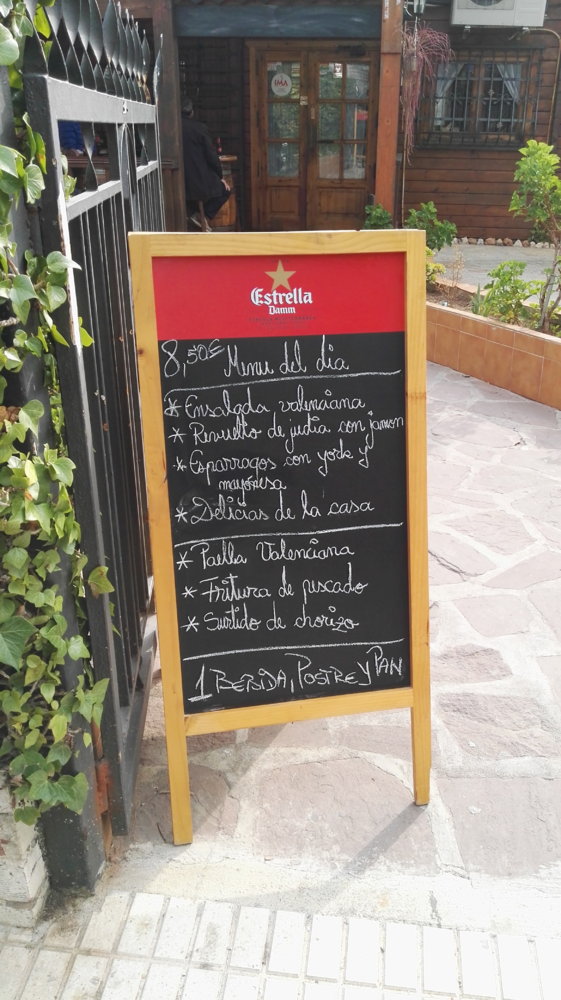 IMA
Estrella
Damm
8,50€ Menu del dia
* Ensalada valenciana
* Revuelto de judia con jamon
* Esparragos con york y
mayonesa
* Delicias de la casa
* Paella Valenciana
* Fritura de pescado
* Surtido de chorizo
1 BEBIDA, POSTRE Y PAN